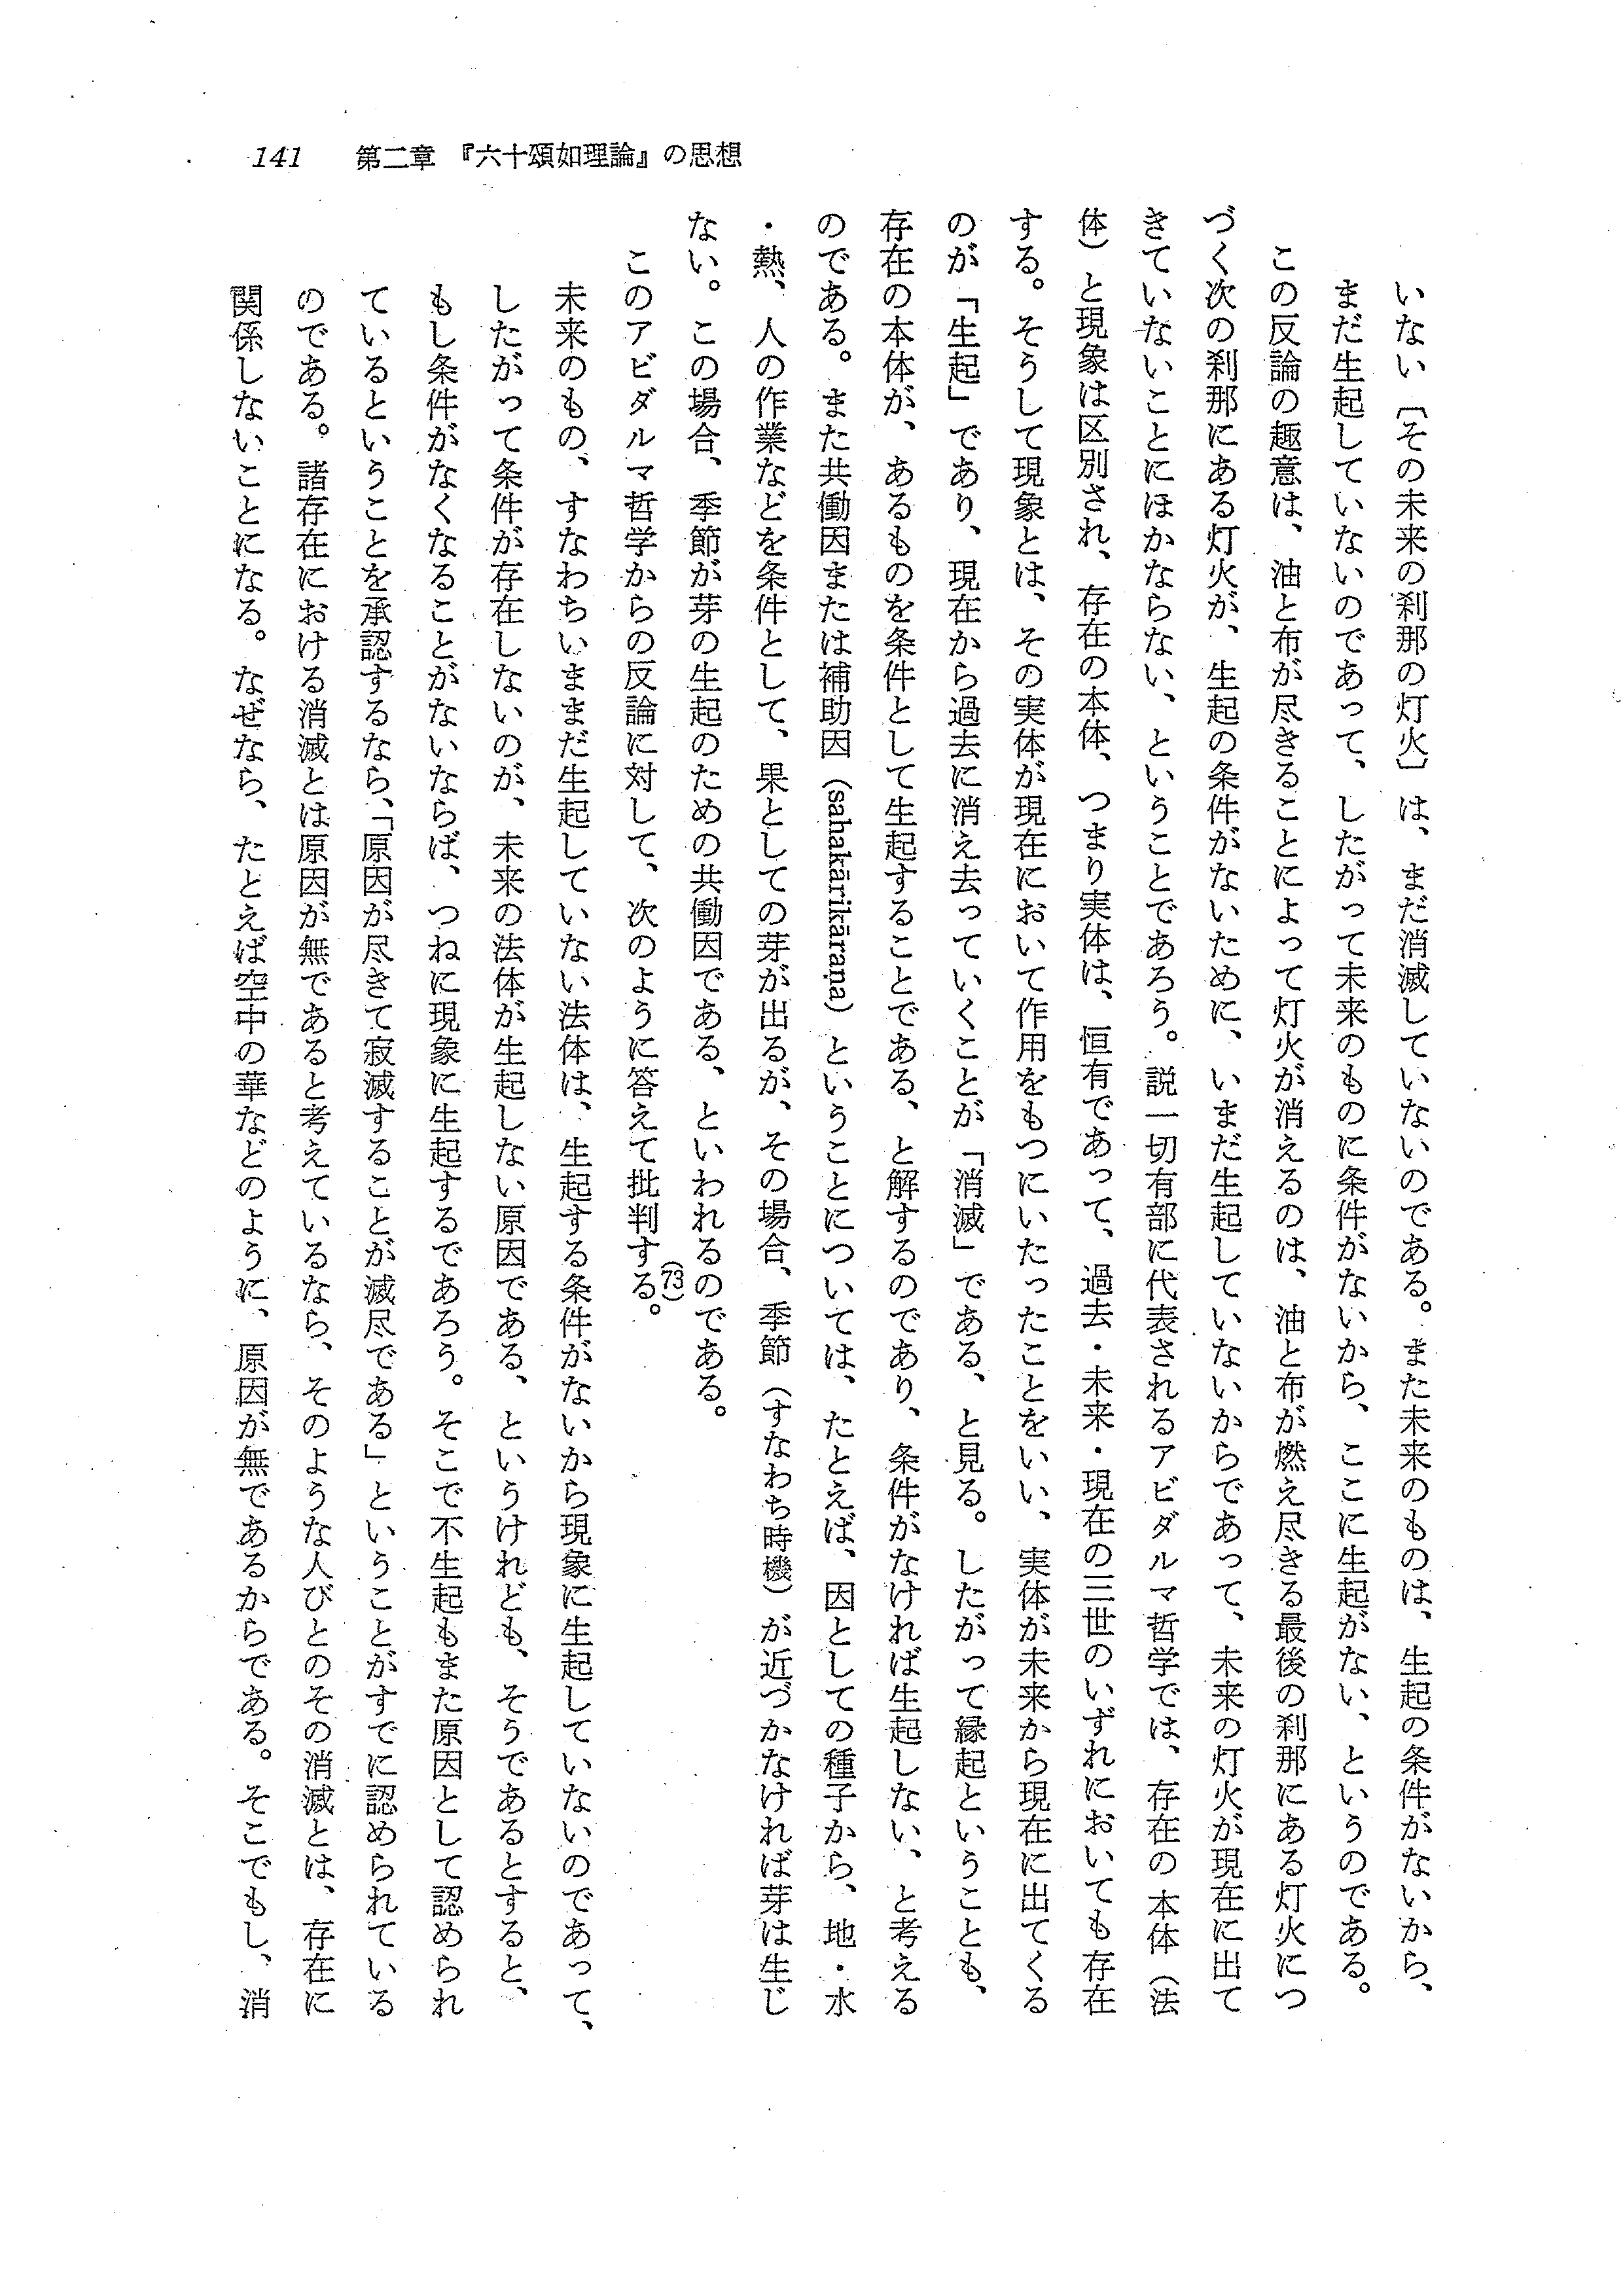 141 第二章 『六十頌如理論』の思想
いない〔その未来の刹那の灯火〕は、まだ消滅していないのである。また未来のものは、生起の条件がないから、
まだ生起していないのであって、したがって未来のものに条件がないから、ここに生起がない、というのである。
この反論の趣意は、油と布が尽きることによって灯火が消えるのは、油と布が燃え尽きる最後の刹那にある灯火につ
づく次の刹那にある灯火が、生起の条件がないために、いまだ生起していないからであって、未来の灯火が現在に出て
きていないことにほかならない、ということであろう。説一切有部に代表されるアビダルマ哲学では、存在の本体（法
体）と現象は区別され、存在の本体、つまり実体は、恒有であって、過去・未来・現在の三世のいずれにおいても存在
する。そうして現象とは、その実体が現在において作用をもつにいたったことをいい、実体が未来から現在に出てくる
のが「生起」であり、現在から過去に消え去っていくことが「消滅」である、と見る。したがって縁起ということも、
存在の本体が、あるものを条件として生起することである、と解するのであり、条件がなければ生起しない、と考える
のである。また共働因または補助因（sahakārikāraṇa）ということについては、たとえば、因としての種子から、地・水
・熱、人の作業などを条件として、果としての芽が出るが、その場合、季節（すなわち時機）が近づかなければ芽は生じ
ない。この場合、季節が芽の生起のための共働因である、といわれるのである。
このアビダルマ哲学からの反論に対して、次のように答えて批判する。(73)
未来のもの、すなわちいままだ生起していない法体は、生起する条件がないから現象に生起していないのであって、
したがって条件が存在しないのが、未来の法体が生起しない原因である、というけれども、そうであるとすると、
もし条件がなくなることがないならば、つねに現象に生起するであろう。そこで不生起もまた原因として認められ
ているということを承認するなら、「原因が尽きて寂滅することが滅尽である」ということがすでに認められている
のである。諸存在における消滅とは原因が無であると考えているなら、そのような人びとのその消滅とは、存在に
関係しないことになる。なぜなら、たとえば空中の華などのように、原因が無であるからである。そこでもし、消